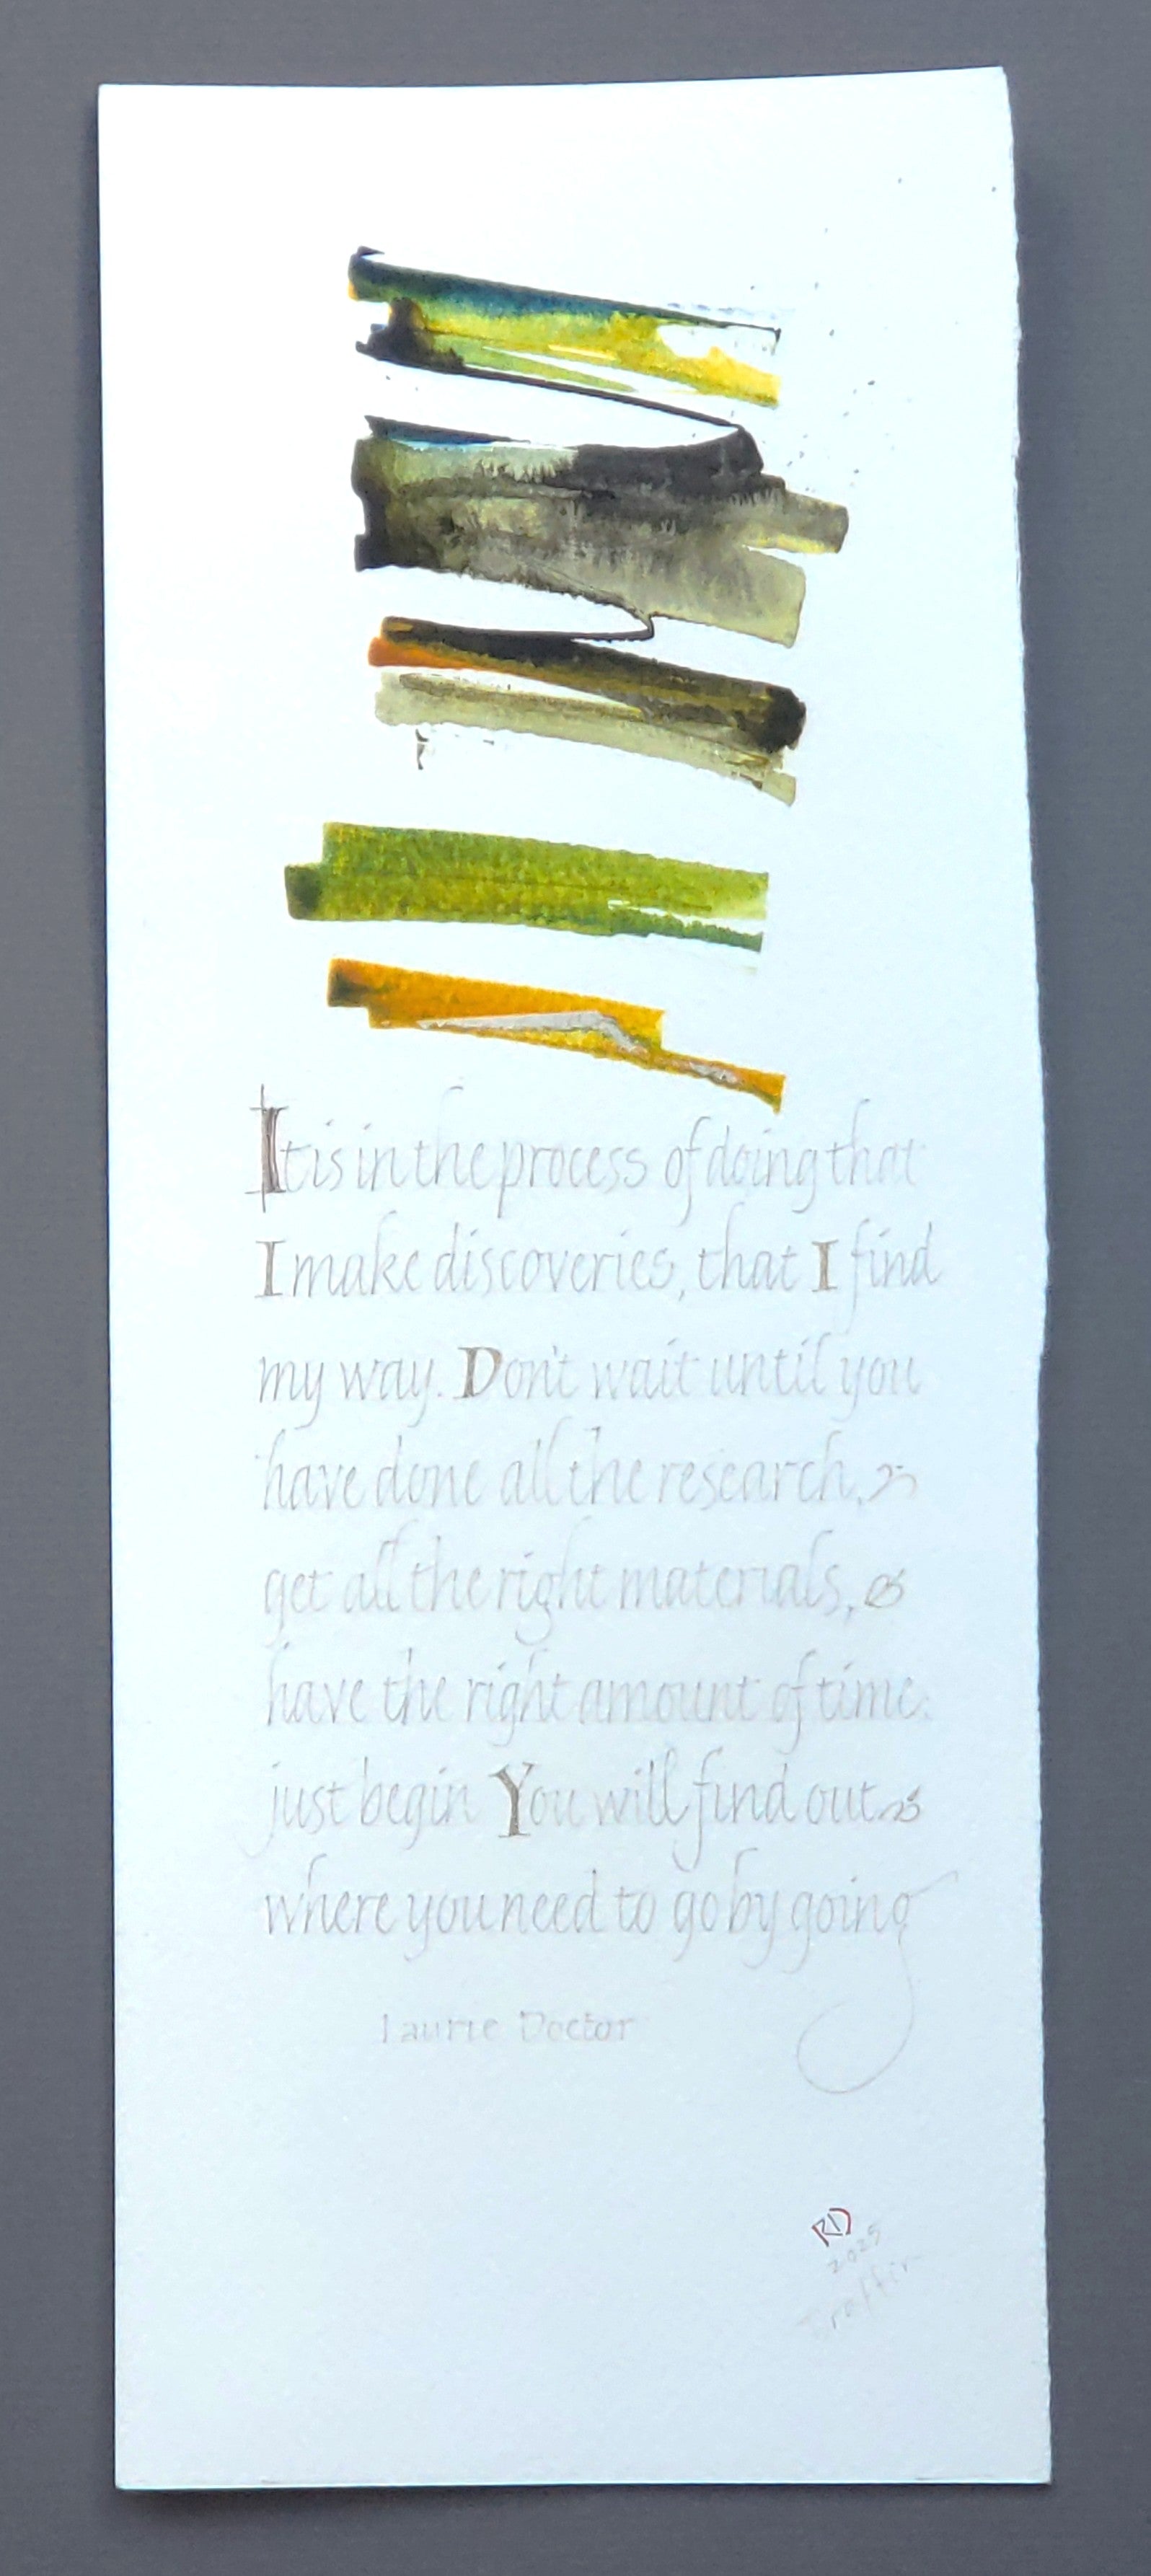 It is in the process of doing that
I make discoveries, that I find
my way. Don't wait until you
have done all the research,
get all the right materials,
have the right amount of time.
just begin You will find out
where you need to go by going
Laurie Doctor
RD
2025